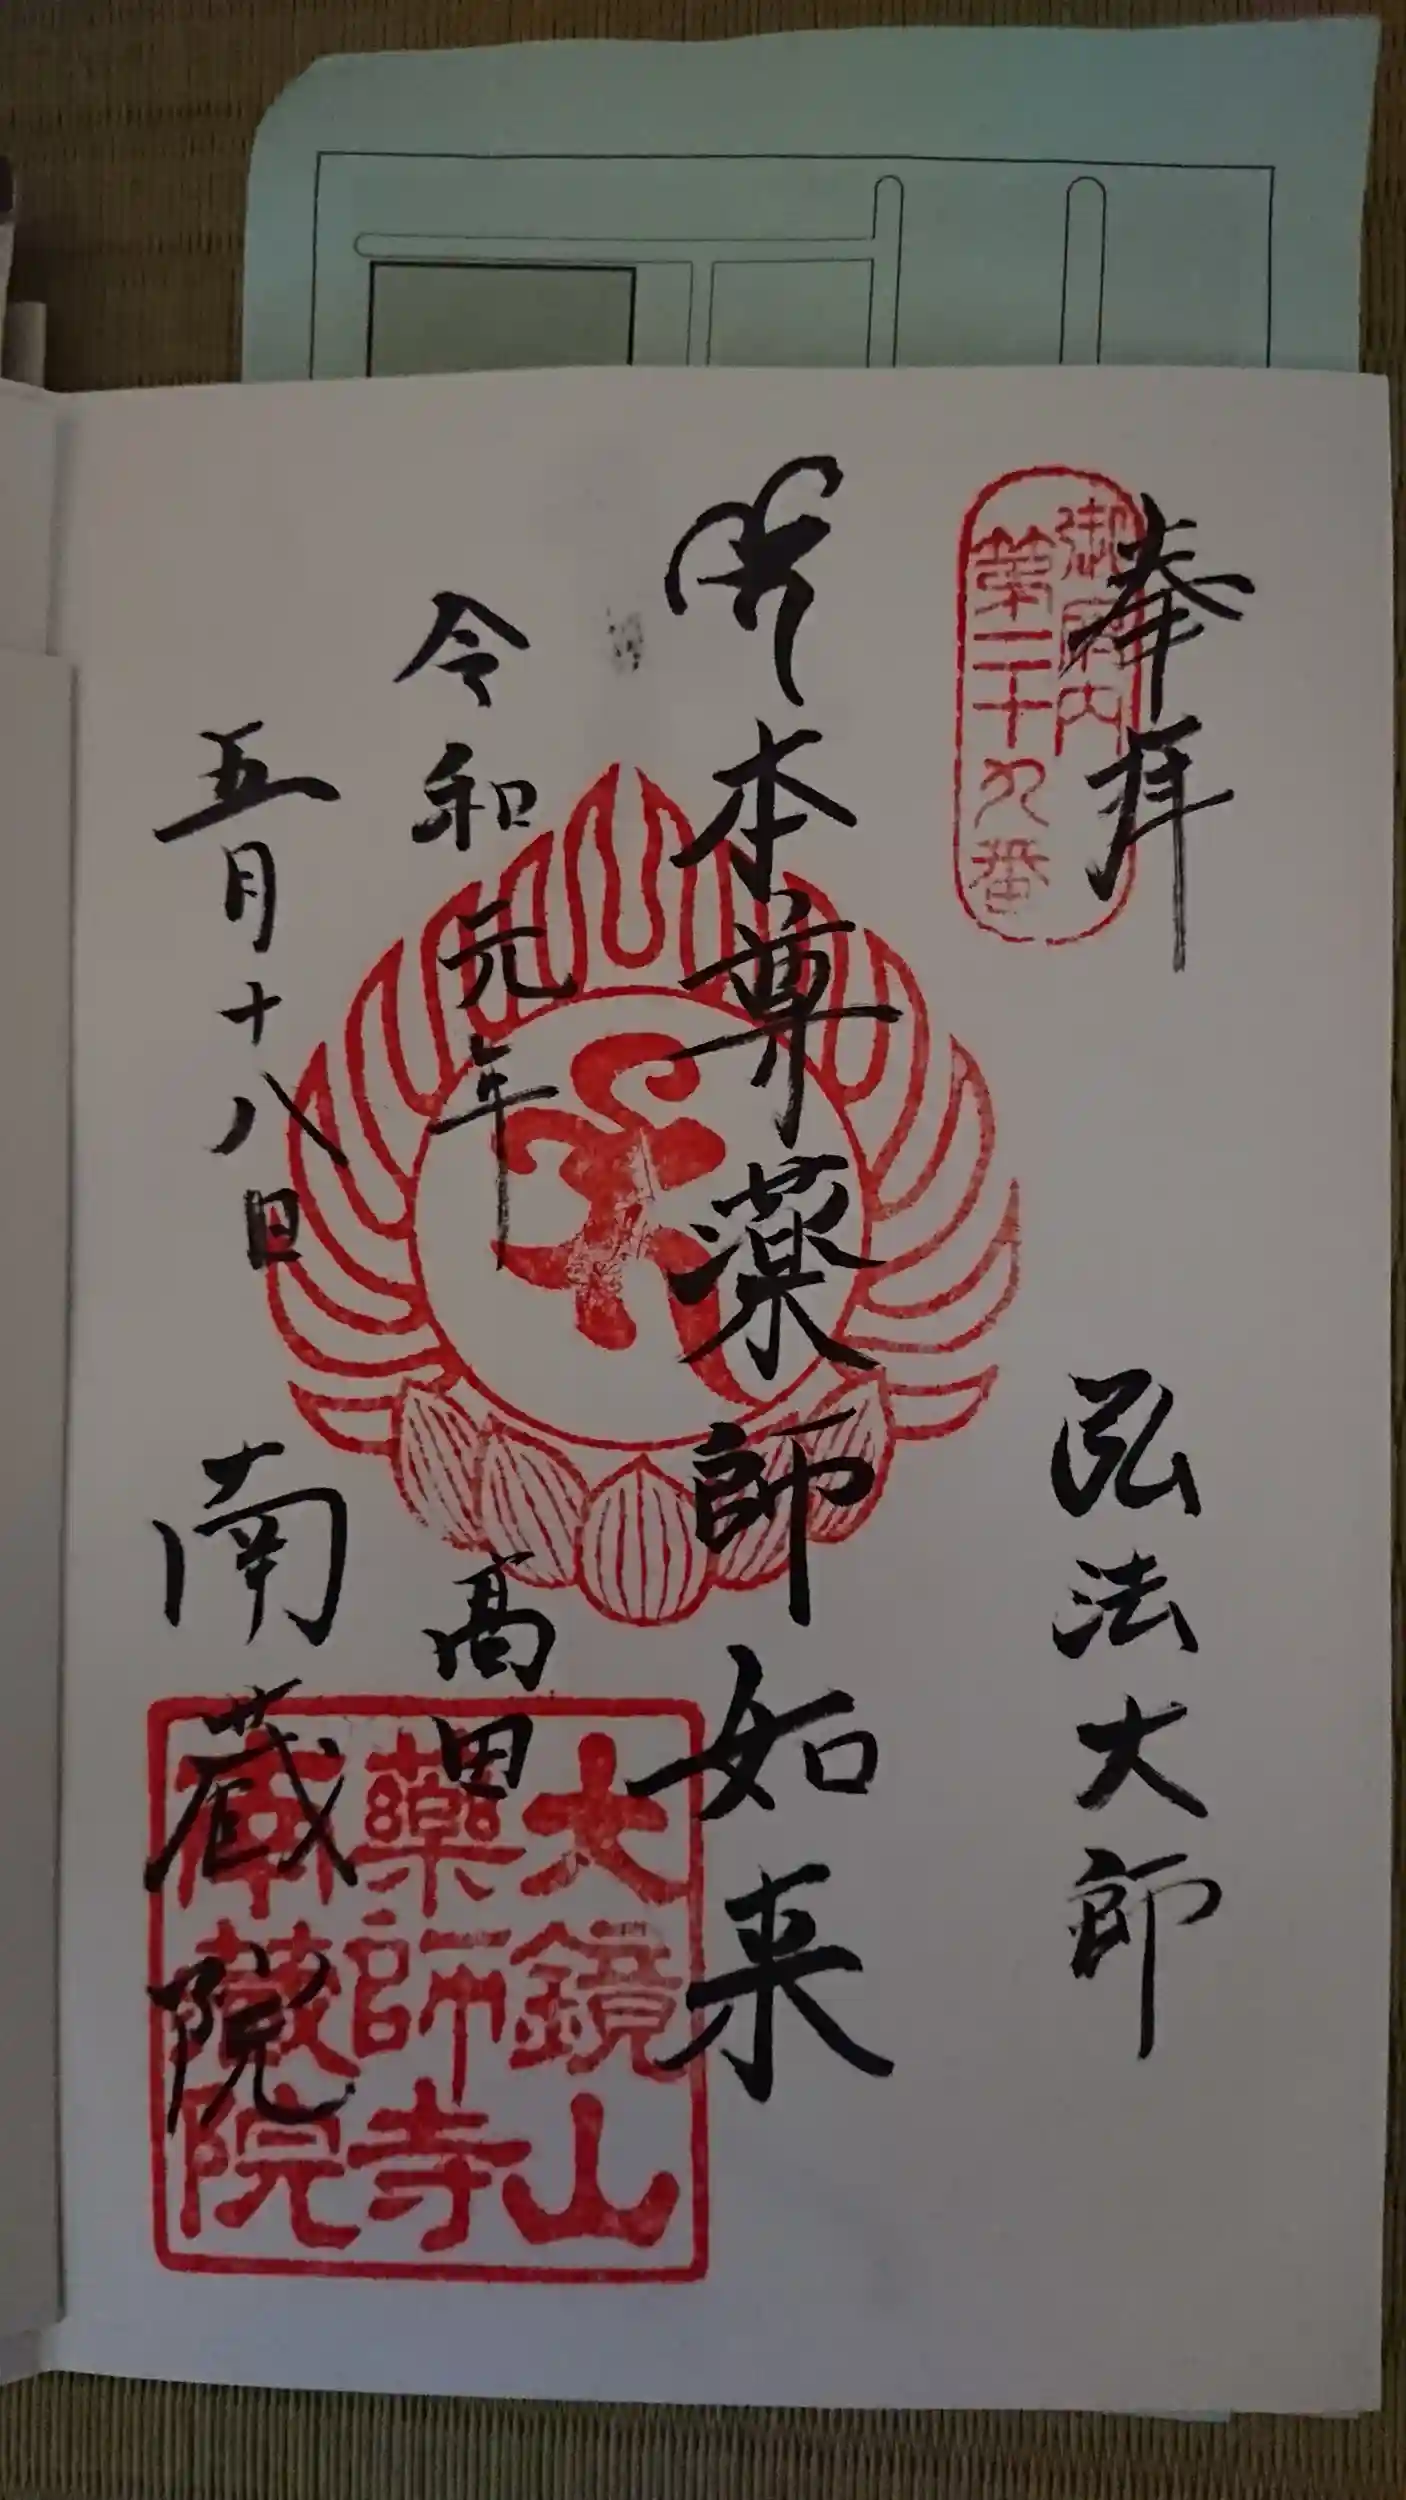 奉拝
弘法大師
御府内
第二十九番
本尊薬師如来
令和元年
高田
五月十八日
南蔵院
大鏡山
薬師寺
南蔵院